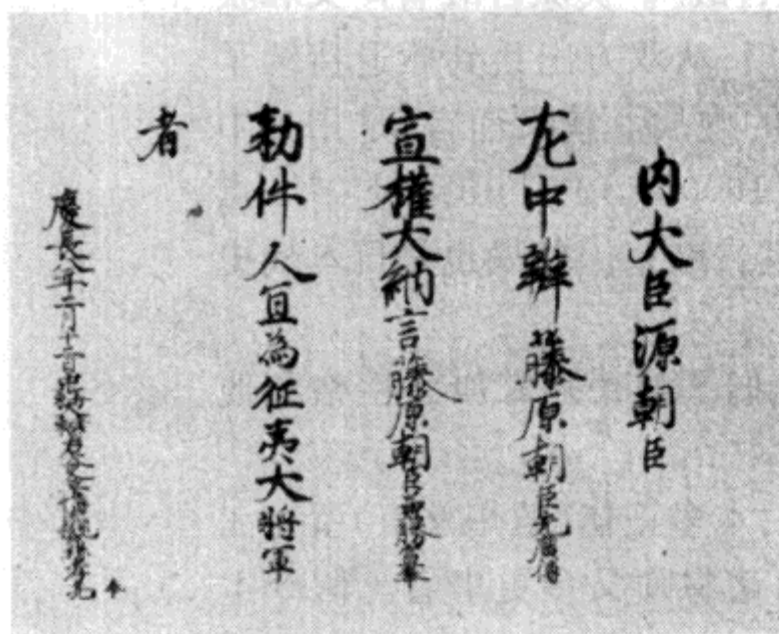 内大臣源朝臣
左中辨藤原朝臣光廣傳
宣權大納言藤原朝臣兼勝宣奉
勅件人宜為征夷大將軍
者
慶長八年二月十二日小槻宿祢孝亮奉